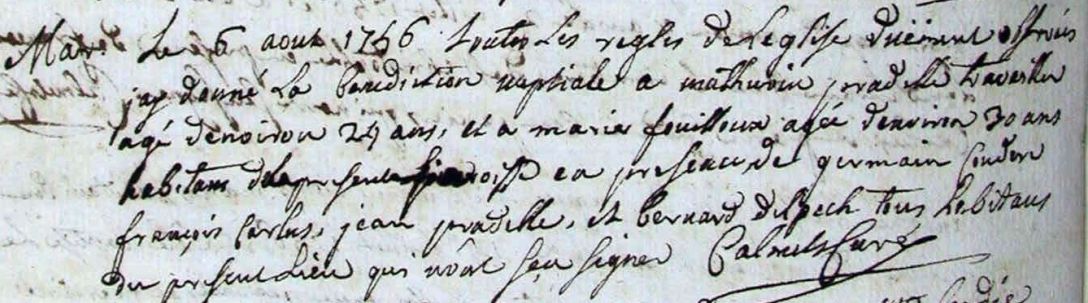 Mar. Le 6 aout 1756 toutes les regles de leglise düement observées
jay donné la benediction nuptiale a mathurin pradelle travailleur
agé denviron 24 ans, et a marie fouilloux agée denviron 30 ans
habitans de la presente paroisse en presence de germain Couderc
françois Carlus, jean pradelle, et bernard delpech tous habitans
du present lieu qui nont sçu signer Calmels Curé